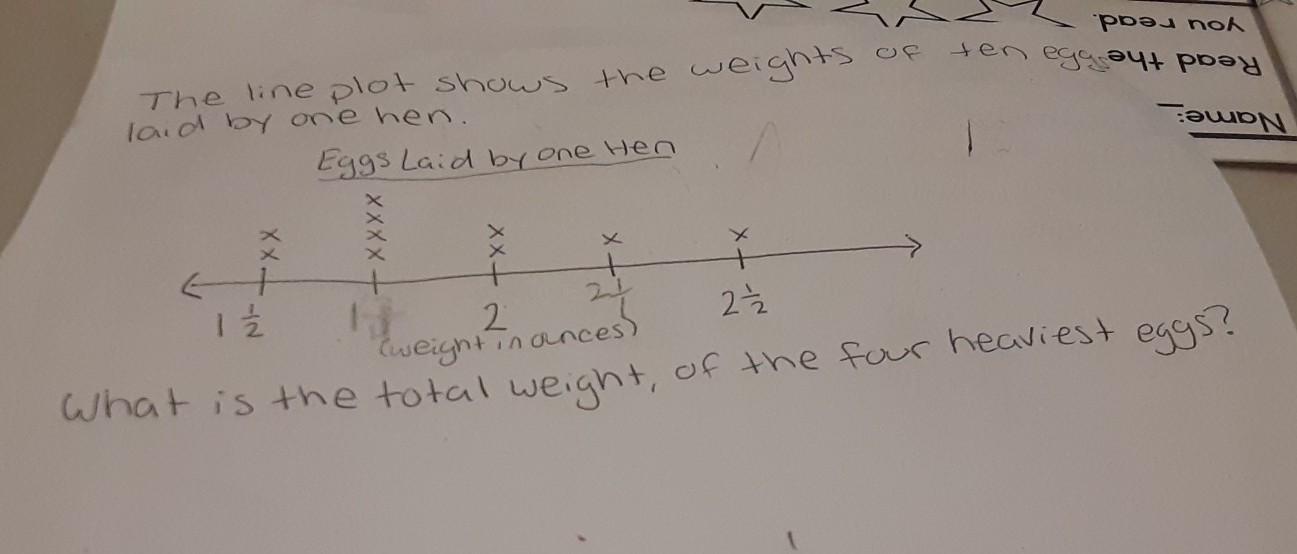 The line plot shows the weights of ten eggs
laid by one hen.
Eggs Laid by one Hen
x x x x x x x x x x
1 1/2 1 2 2 1/2
(weight in ounces)
What is the total weight, of the four heaviest eggs?
Name:
Read the
you read.